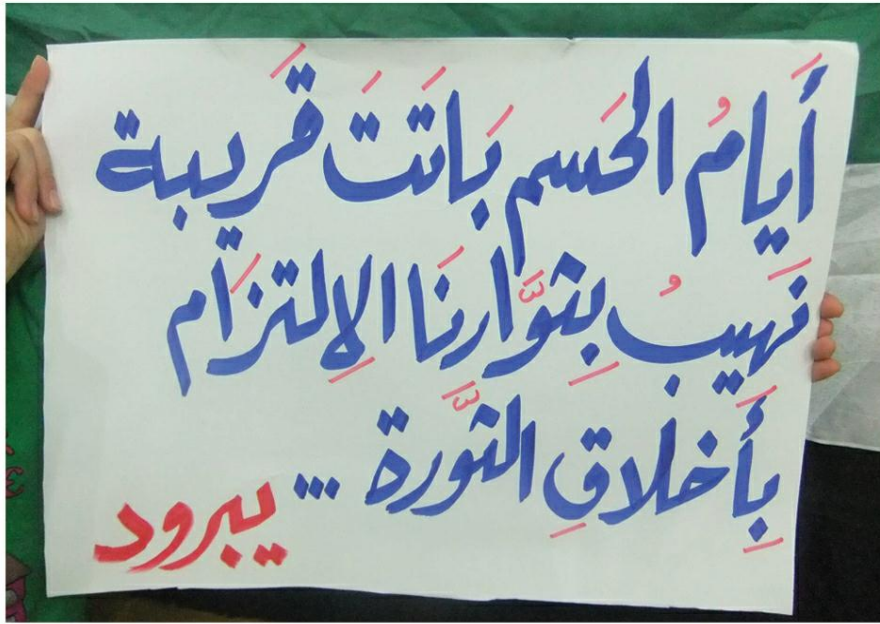 أَيامُ الحَسم بَاتَتَ قَريبة
نَهيبُ بِثوَّارنَا الاِلتزَام
بِأَخلاقِ الثَّورة ... يبرود